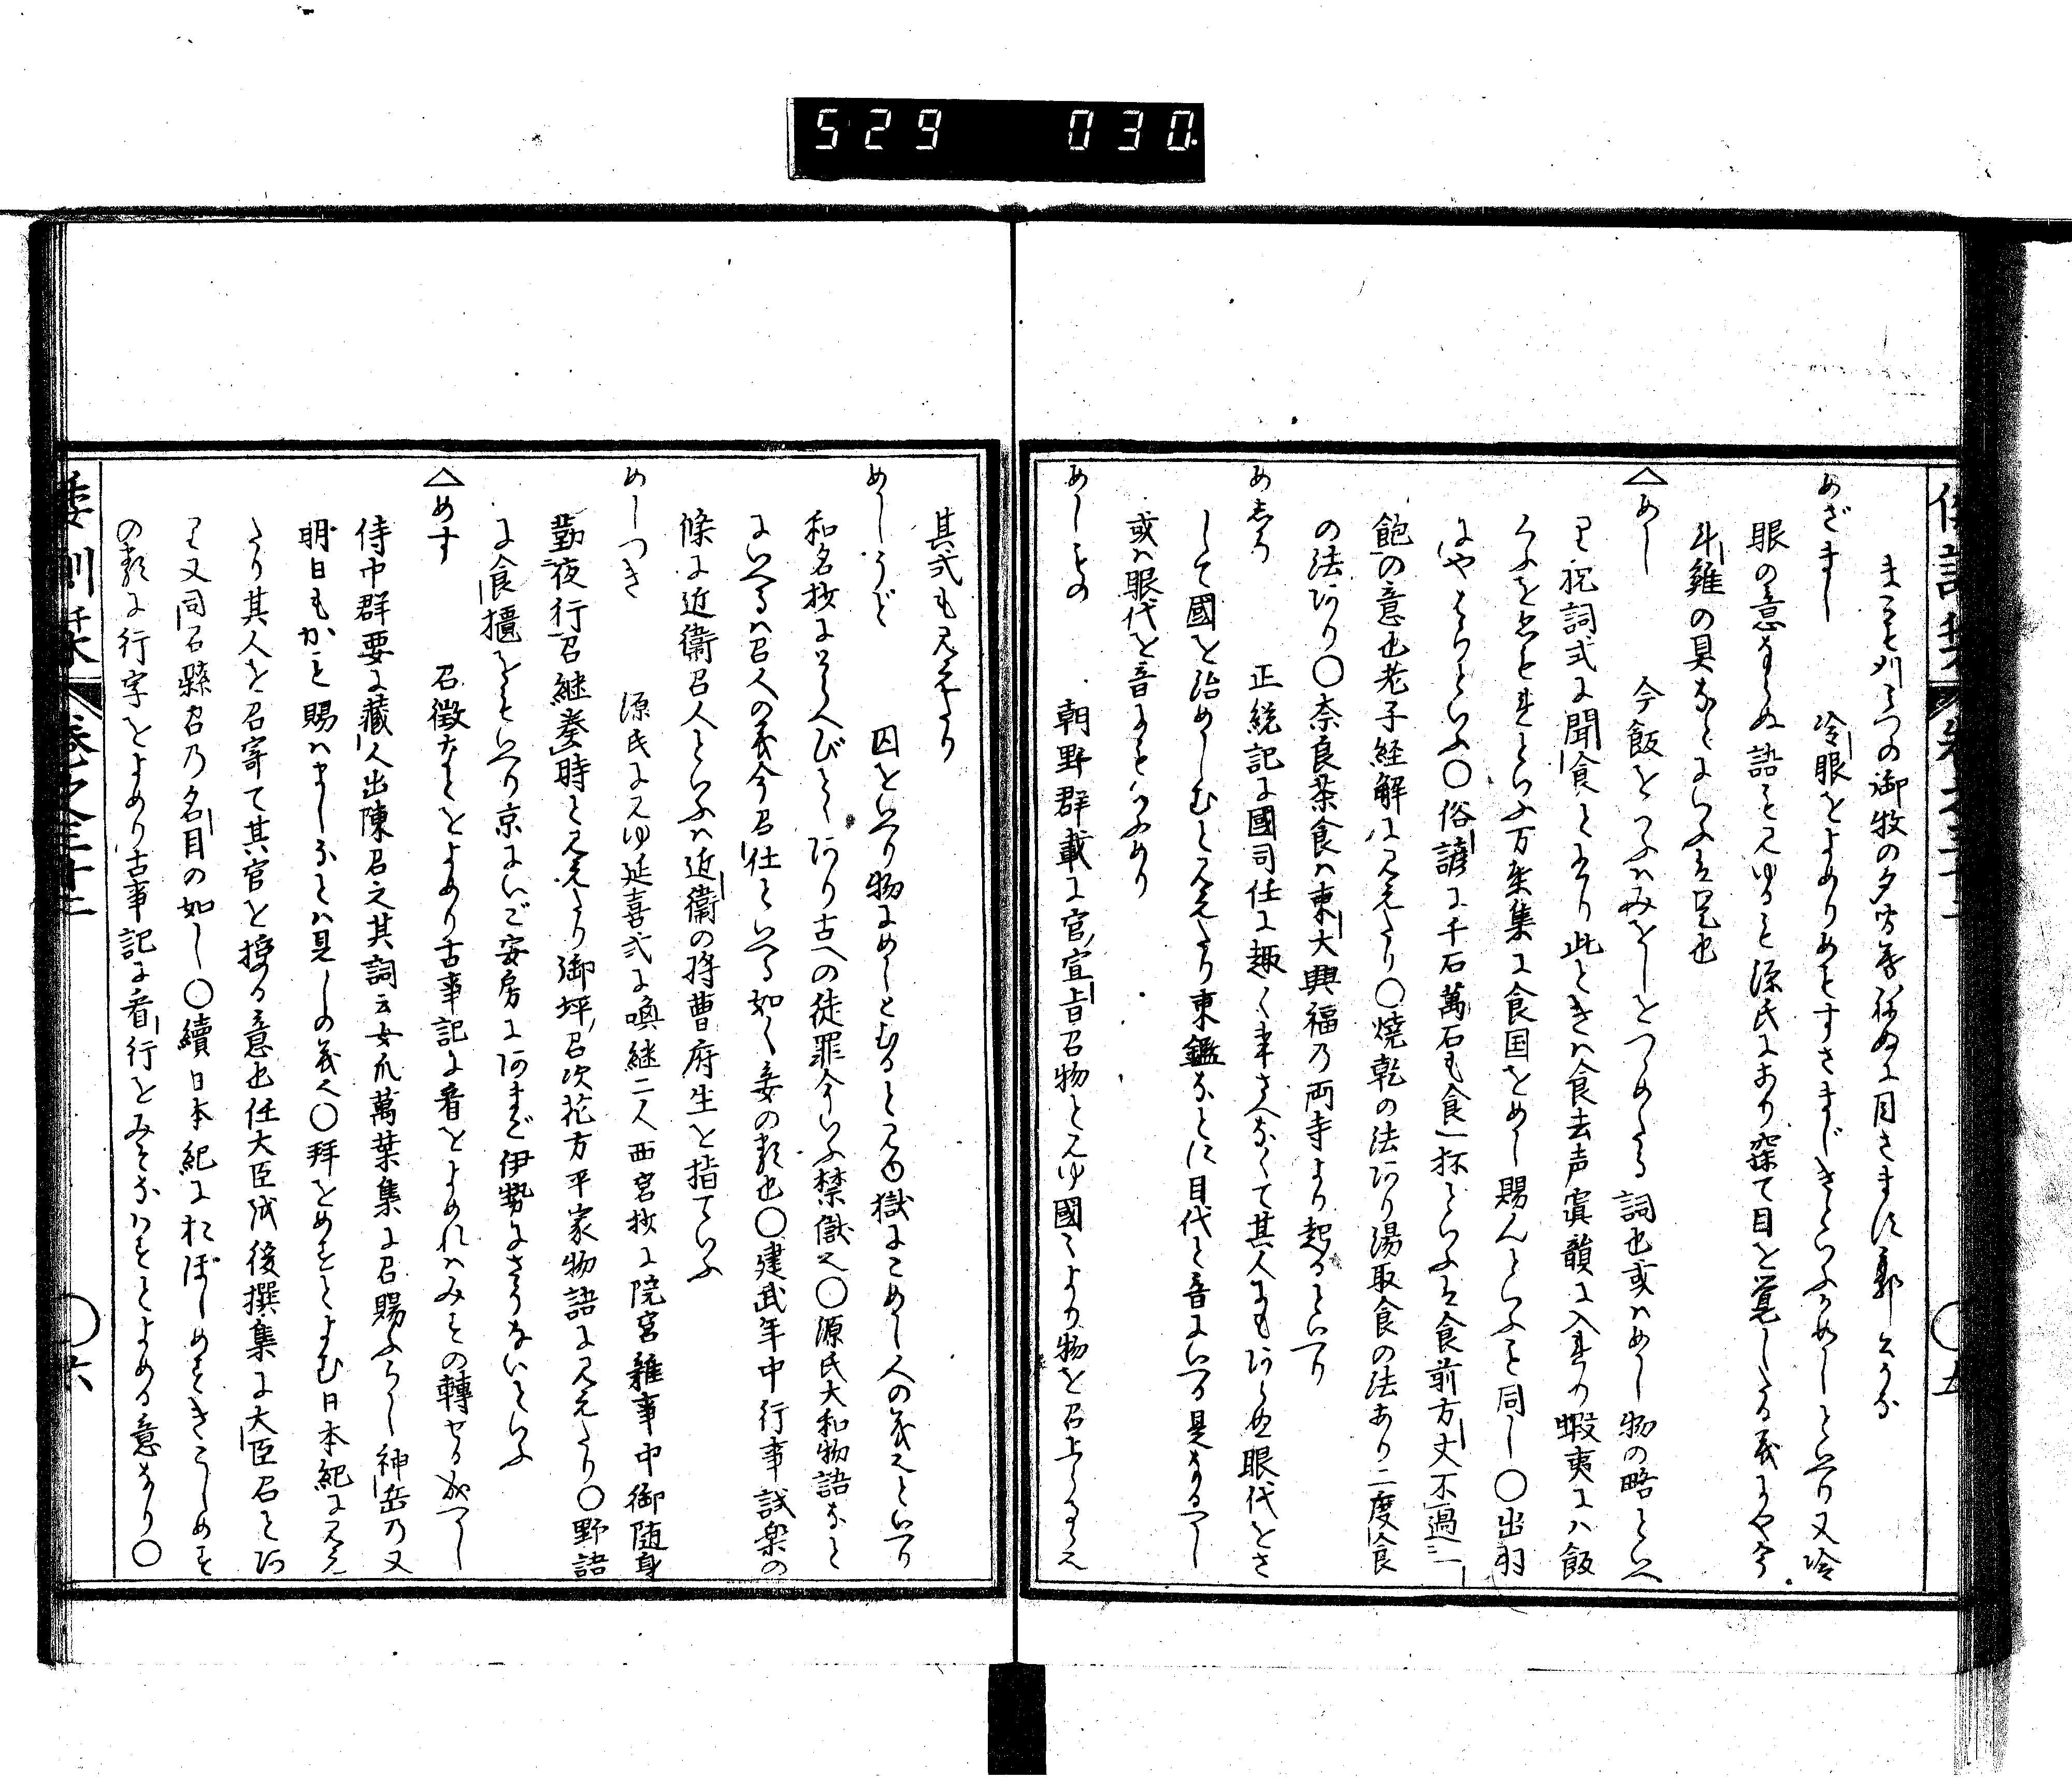 529 030
まこも刈みつの御牧の夕ま昏ねぬに目さまに郭公かな
めざまし 冷眼をよめりめもすさまじきといふかめしといへり又冷
眼の意ならぬ語と見ゆると源氏にあり寐て目を覚したる義にや今
斗雞の具なとにいふも是也
△めし 今飯をいふハみをしをつゝめたる詞也或ハめし物の略といへ
り祝詞式に聞食とあり此ときハ食去声寘韻に入れり蝦夷にハ飯
くふをあもれといふ万葉集に食国をめし賜んといふも同し○出羽
はやはらといふ○俗諺に千石萬石も食一杯といふも食前方丈不過一
飽の意也老子経解に見えたり○焼乾の法あり湯取食の法あり二度食
の法あり○奈良茶食ハ東大興福乃両寺より起るといへり
めしろ 正統記に國司任に趣く事さへなくて其人にもあらぬ眼代をさ
して國を治めしむと見えたり東鑑なとに目代と音にいへる是なるへし
或ハ眼代を音にもいふめり
めしもの 朝野群載に官宣旨召物と見ゆ國々より物を召上らるゝ也
其式も見えたり
めしうど 囚をいへり物にめしとむると見ゆ獄にこめし人の義也といへり
和名抄にとらへびとゝあり古への徒罪今いふ禁獄也○源氏大和物語なと
にいへるハ召人の義今召仕といへる如く妾の類也○建武年中行事試楽の
條に近衞召人といふハ近衞の将曹府生を指ていふ
めしつき 源氏に見ゆ延喜式に喚継二人西宮抄に院宮雜事中御随身
勤夜行召継奏時と見えたり御坪召次花方平家物語に見えたり○野語
に食櫃をもいへり京にいご安房にあまご伊勢にさうないといふ
△めす 召徴なとをよめり古事記に看をよめれハみすの轉せる成へし
侍中群要に藏人出陳召之其詞云女爪萬葉集に召賜ふらし神岳乃又
明日もかも賜ハましなとハ見しの義也○拜をめすとよむ日本紀に見え
たり其人を召寄て其官を授る意也任大臣式後撰集に大臣召とあ
り又同召縣召乃名目の如し○續日本紀におぼしめすきこしめす
の類に行字をよめり古事記に看行をみそなハすとよめる意なり○